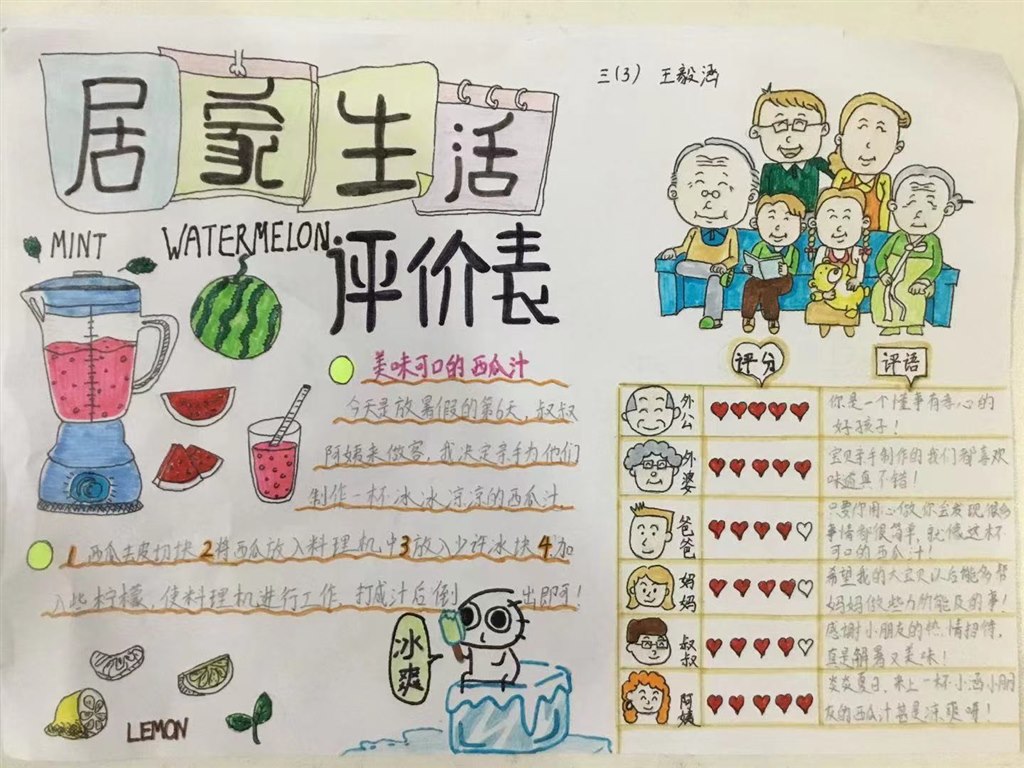 居家生活
评价表
三(3) 王毅涵
MINT
WATERMELON
美味可口的西瓜汁
今天是放暑假的第6天，叔叔
阿姨来做客，我决定亲手为他们
制作一杯冰冰凉凉的西瓜汁
1 西瓜去皮切块 2 将西瓜放入料理机中 3 放入少许冰块 4 加
入些柠檬，使料理机进行工作，打成汁后倒出即可！
冰爽
LEMON
评分
评语
外公
你是一个懂事有孝心的
好孩子！
外婆
宝贝亲手制作的我们都喜欢
味道真不错！
爸爸
只要你用心做你会发现很多
事情都很简单，就像这杯
可口的西瓜汁！
妈妈
希望我的大宝贝以后能多帮
妈妈做些力所能及的事！
叔叔
感谢小朋友的热情招待，
真是解暑又美味！
阿姨
炎炎夏日，来上一杯小涵小朋
友的西瓜汁甚是凉爽呀！